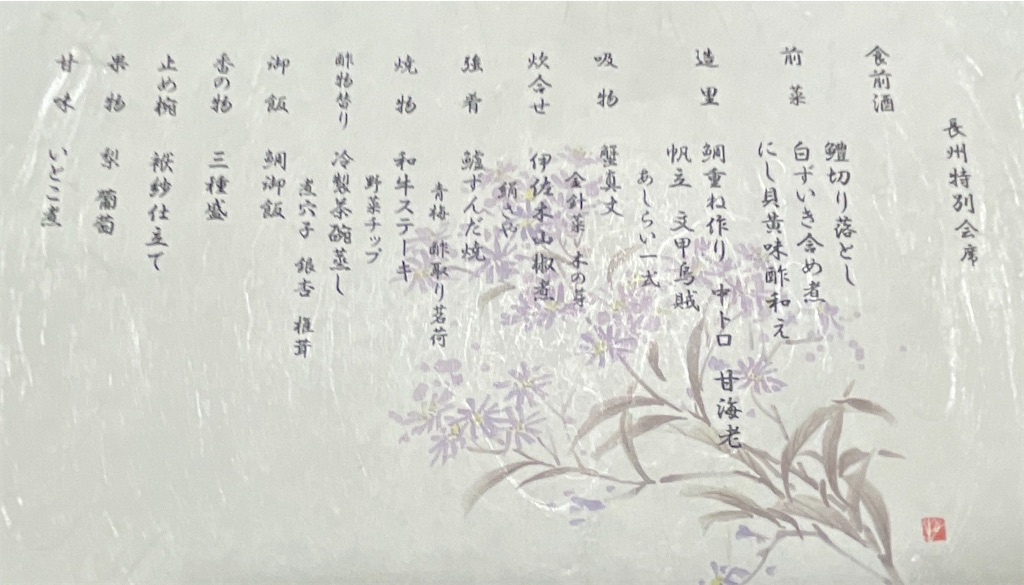 長州特別会席
食前酒
前菜 鱧切り落とし
白ずいき含め煮
にし貝黄味酢和え
造里 鯛重ね作り 中トロ 甘海老
帆立 文甲烏賊
あしらい一式
吸物 蟹真丈
金針菜 木の芽
炊合せ 伊佐木山椒煮
絹さや
強肴 鱸ずんだ焼
青梅 酢取り茗荷
焼物 和牛ステーキ
野菜チップ
酢物替り 冷製茶碗蒸し
煮穴子 銀杏 椎茸
御飯 鯛御飯
香の物 三種盛
止め椀 袱紗仕立て
果物 梨 葡萄
甘味 いとこ煮